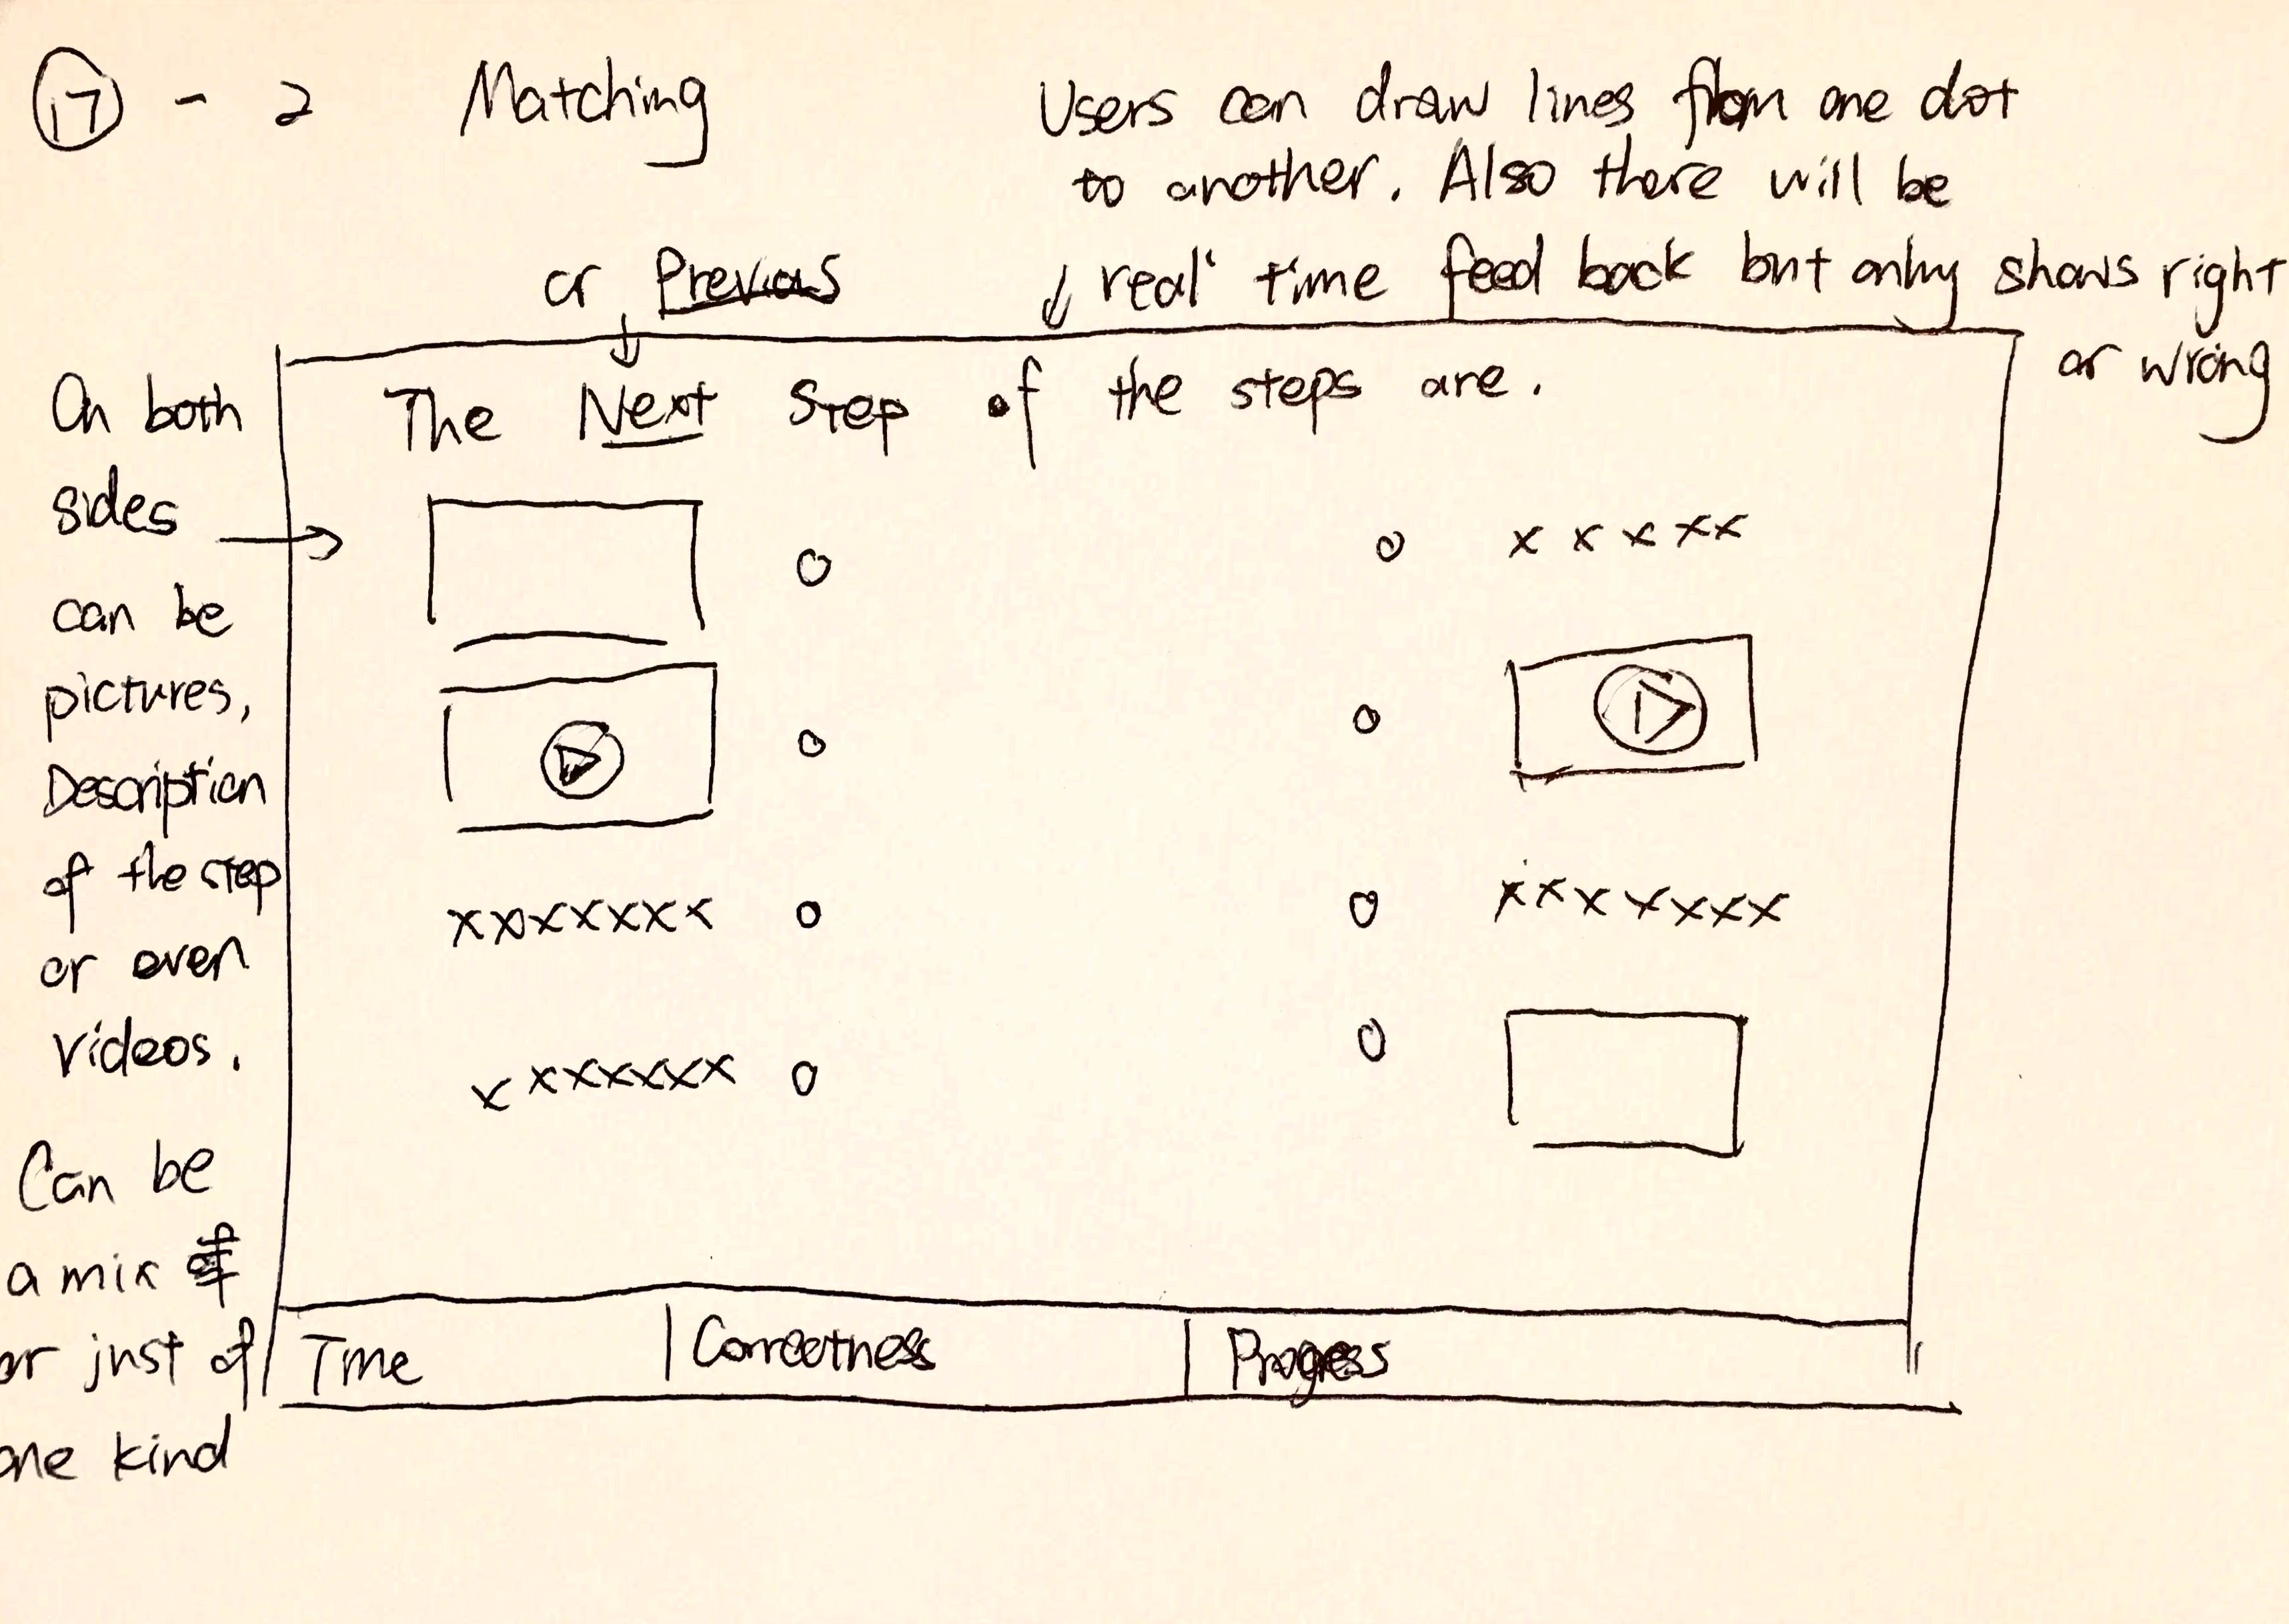 17 - 2 Matching
Users can draw lines from one dot
to another. Also there will be
real time feed back but only shows right
or wrong
or Previous
The Next Step of the steps are.
On both
sides
can be
pictures,
Description
of the step
or even
videos.
Can be
a mix of
or just of
one kind
x x x x x
x x x x x x x
x x x x x x x
x x x x x x x
Time
Correctness
Progress